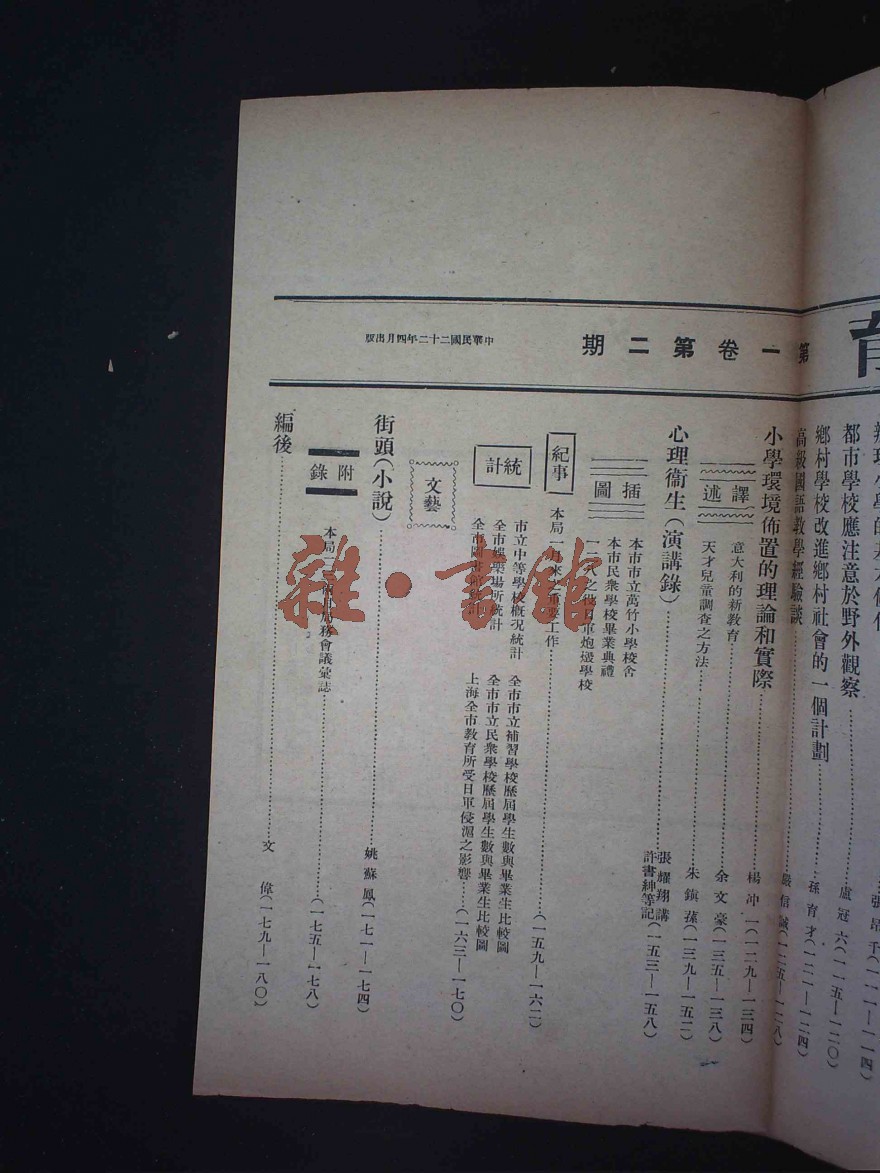 育
第一卷第二期
中華民國二十二年四月出版
張昂千(一一一—一一四)
都市學校應注意於野外觀察 盧冠六(一一五—一二〇)
鄉村學校改進鄉村社會的一個計劃 孫育才(一二一—一二四)
高級國語教學經驗談 嚴信誠(一二五—一二八)
小學環境佈置的理論和實際 楊冲一(一二九—一三四)
譯述
意大利的新教育 余文豪(一三五—一三八)
天才兒童調查之方法 朱鎮蓀(一三九—一五二)
心理衞生(演講錄) 張耀翔講
許書紳等記(一五三—一五八)
插圖
本市市立萬竹小學校舍
本市民衆學校畢業典禮
一二八之役日軍炮燬學校
紀事
本局一月來之重要工作(一五九—一六二)
統計
市立中等學校概况統計 全市市立補習學校歷屆學生數與畢業生比較圖
全市娛樂場所統計 全市市立民衆學校歷屆學生數與畢業生比較圖
全市圖書館統計 上海全市教育所受日軍侵滬之影響(一六三—一七〇)
文藝
街頭(小說) 姚蘇鳳(一七一—一七四)
附錄
本局一二兩月局務會議彙誌(一七五—一七八)
編後 文偉(一七九—一八〇)
雜·書館